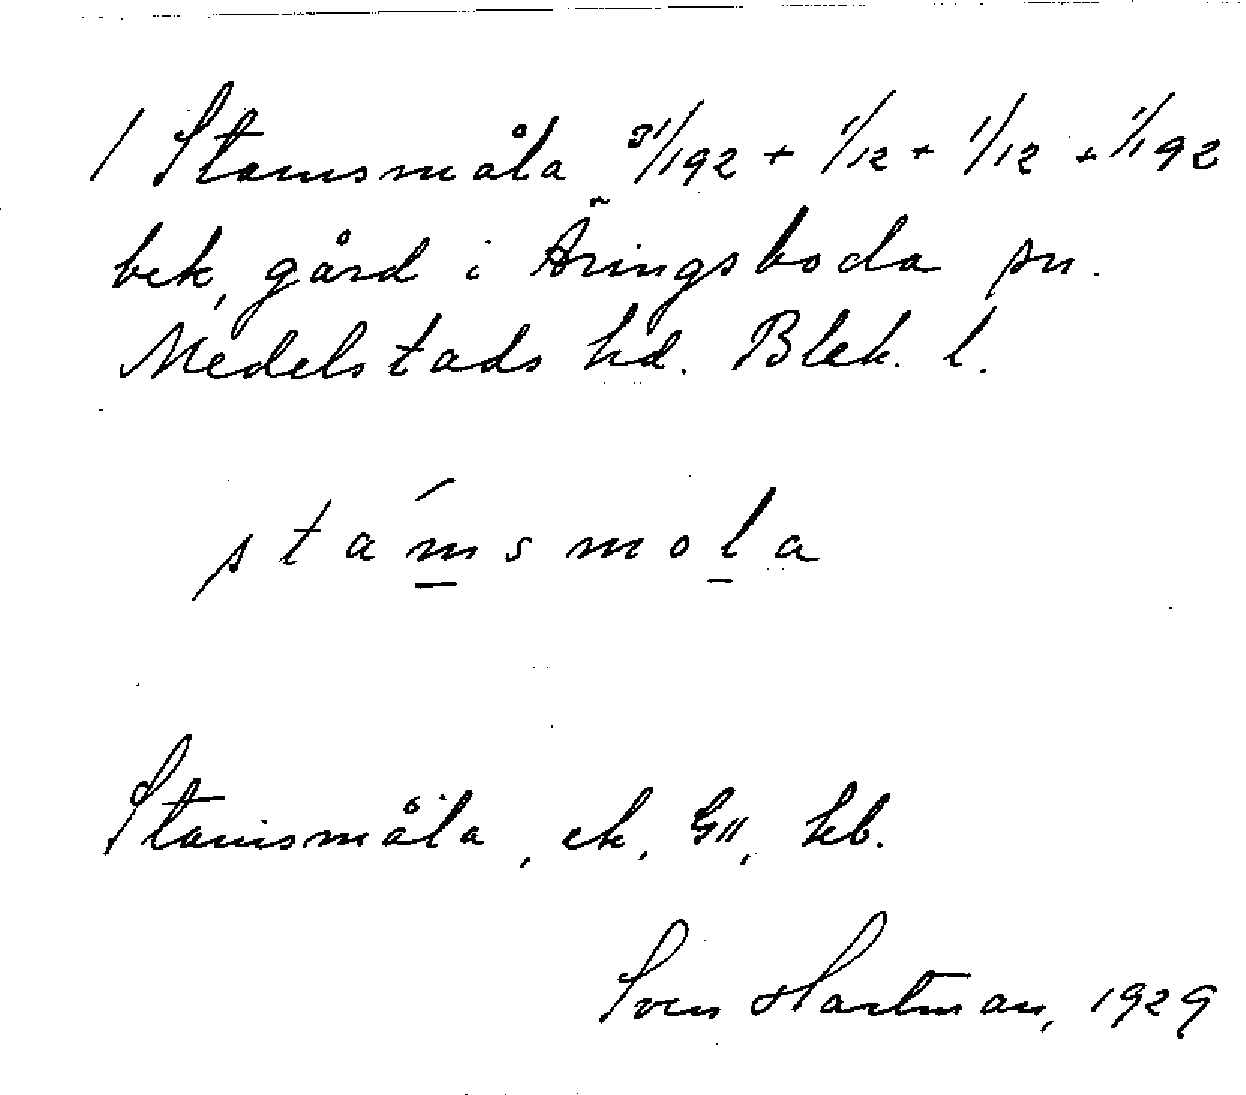 / Stamsmåla 31/192 + 1/12 + 1/12 + 1/192
bek, gård i Äringsboda sn.
Medelstads hd. Blek. l.
stám̲smol̲a
Stamsmåla, ek, GII, kb.
Sven Hartman, 1929